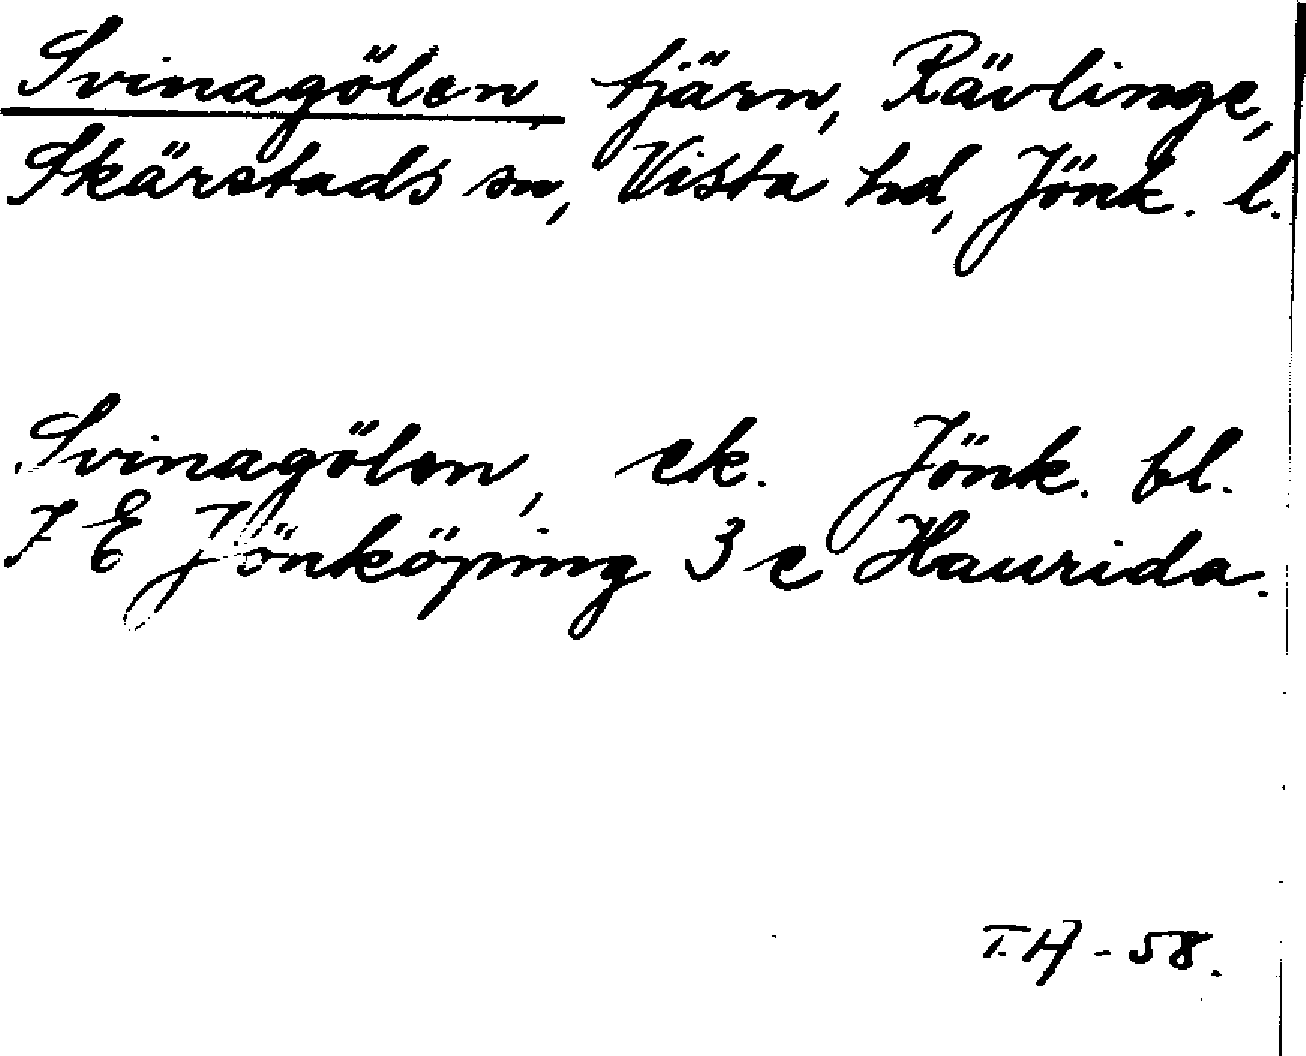 Svinagölen, tjärn, Rävlinge,
Skärstads sn, Vista hd, Jönk. l.
Svinagölen, ek. Jönk. bl.
7 E Jönköping 3 e Haurida.
T.H - 58.